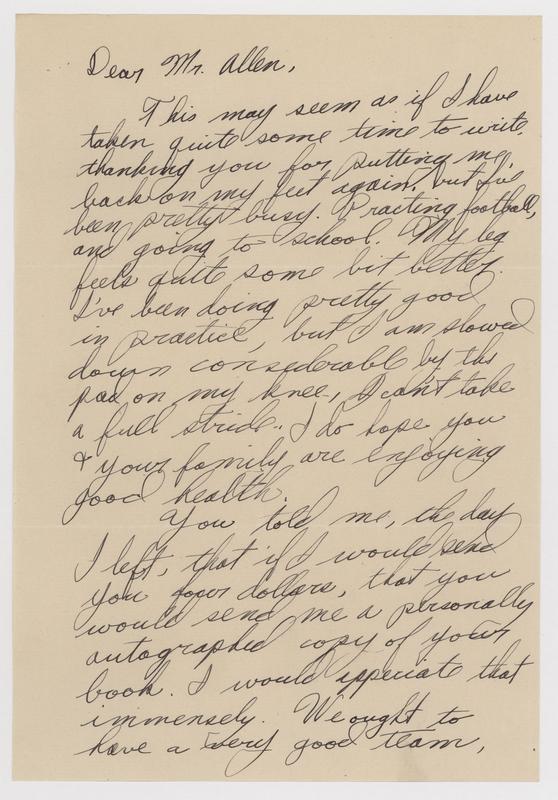 Dear Mr. Allen,
This may seem as if I have
taken quite some time to write,
thanking you for putting me,
back on my feet again, but I've
been pretty busy. Practing football,
and going to school. My leg
feels quite some bit better.
I've been doing pretty good
in practice, but I am slowed
down considerable by the
pad on my knee, I can't take
a full stride. I do hope you
& your family are enjoying
good health.
You told me, the day
I left, that if I would send
you four dollars, that you
would send me a personally
autographed copy of your
book. I would appeciate that
immensely. We ought to
have a very good team,